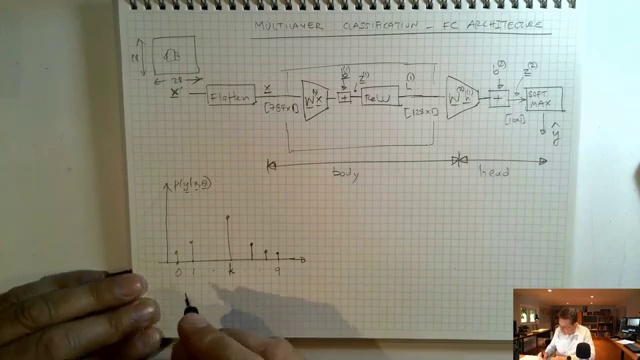 MULTILAYER CLASSIFICATION - FC ARCHITECTURE
28
28
X
Flatten
x
[784x1]
W⁽¹⁾x
b⁽¹⁾
+
z⁽¹⁾
ReLU
[128x1]
W⁽²⁾h⁽¹⁾
b⁽²⁾
+
z⁽²⁾
[10x1]
SOFT
MAX
ŷ
body
head
p(y|x,θ)
0 1 . k 9